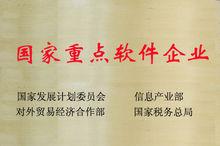 国家重点软件企业
国家发展计划委员会 信息产业部
对外贸易经济合作部 国家税务总局